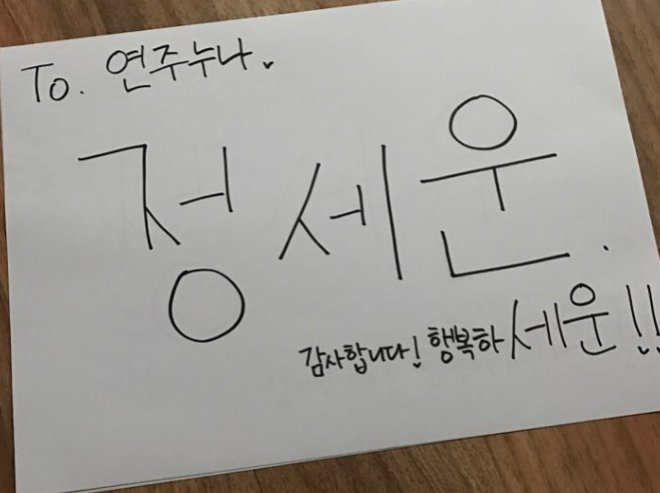 To. 연주누나.
정세운.
감사합니다! 행복하세운!!